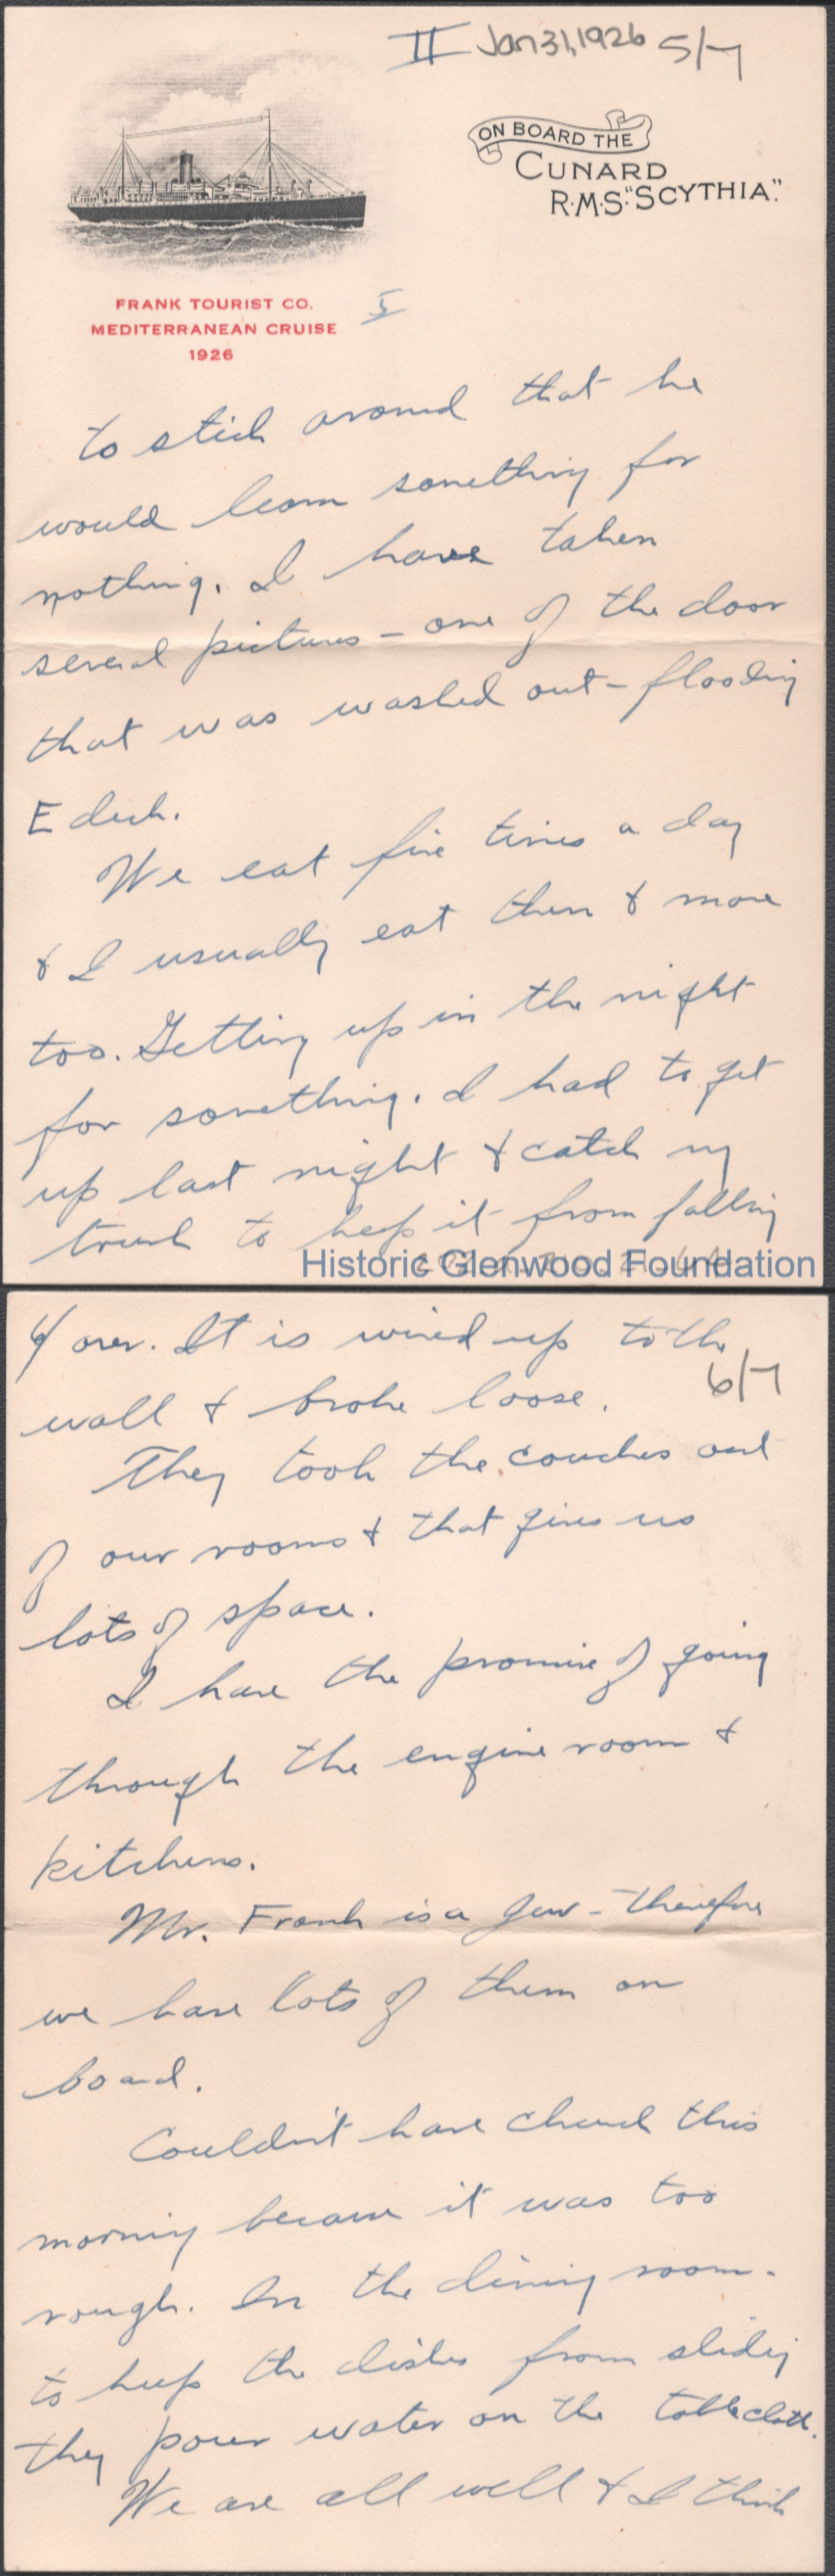 II Jan 31, 1926 5/7
ON BOARD THE
CUNARD
R·M·S·"SCYTHIA".
FRANK TOURIST CO.
MEDITERRANEAN CRUISE
1926
5
to stick around that he
would learn something for
nothing. I have taken
several pictures - one of the door
that was washed out - flooding
E deck.
We eat five times a day
& I usually eat them & more
too. Getting up in the night
for something. I had to get
up last night & catch my
trunk to keep it from falling
Historic Glenwood Foundation
6/ over. It is wired up to the
6/7
wall & broke loose.
They took the couches out
of our rooms & that gives us
lots of space.
I have the promise of going
through the engine room &
kitchens.
Mr. Frank is a Jew - therefore
we have lots of them on
board.
Couldn't have church this
morning because it was too
rough. In the dining room -
to keep the dishes from sliding
they pour water on the tablecloth.
We are all well & I think